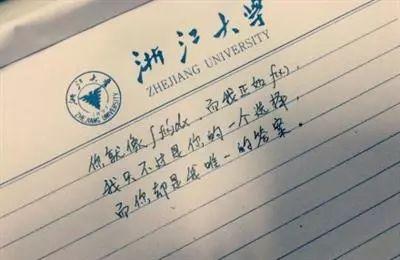 浙江大学
ZHEJIANG UNIVERSITY
浙江大学
ZHEJIANG UNIVERSITY
你就像∫f(x)dx,而我正如f(x),
我只不过是你的一个选择,
而你却是我唯一的答案。